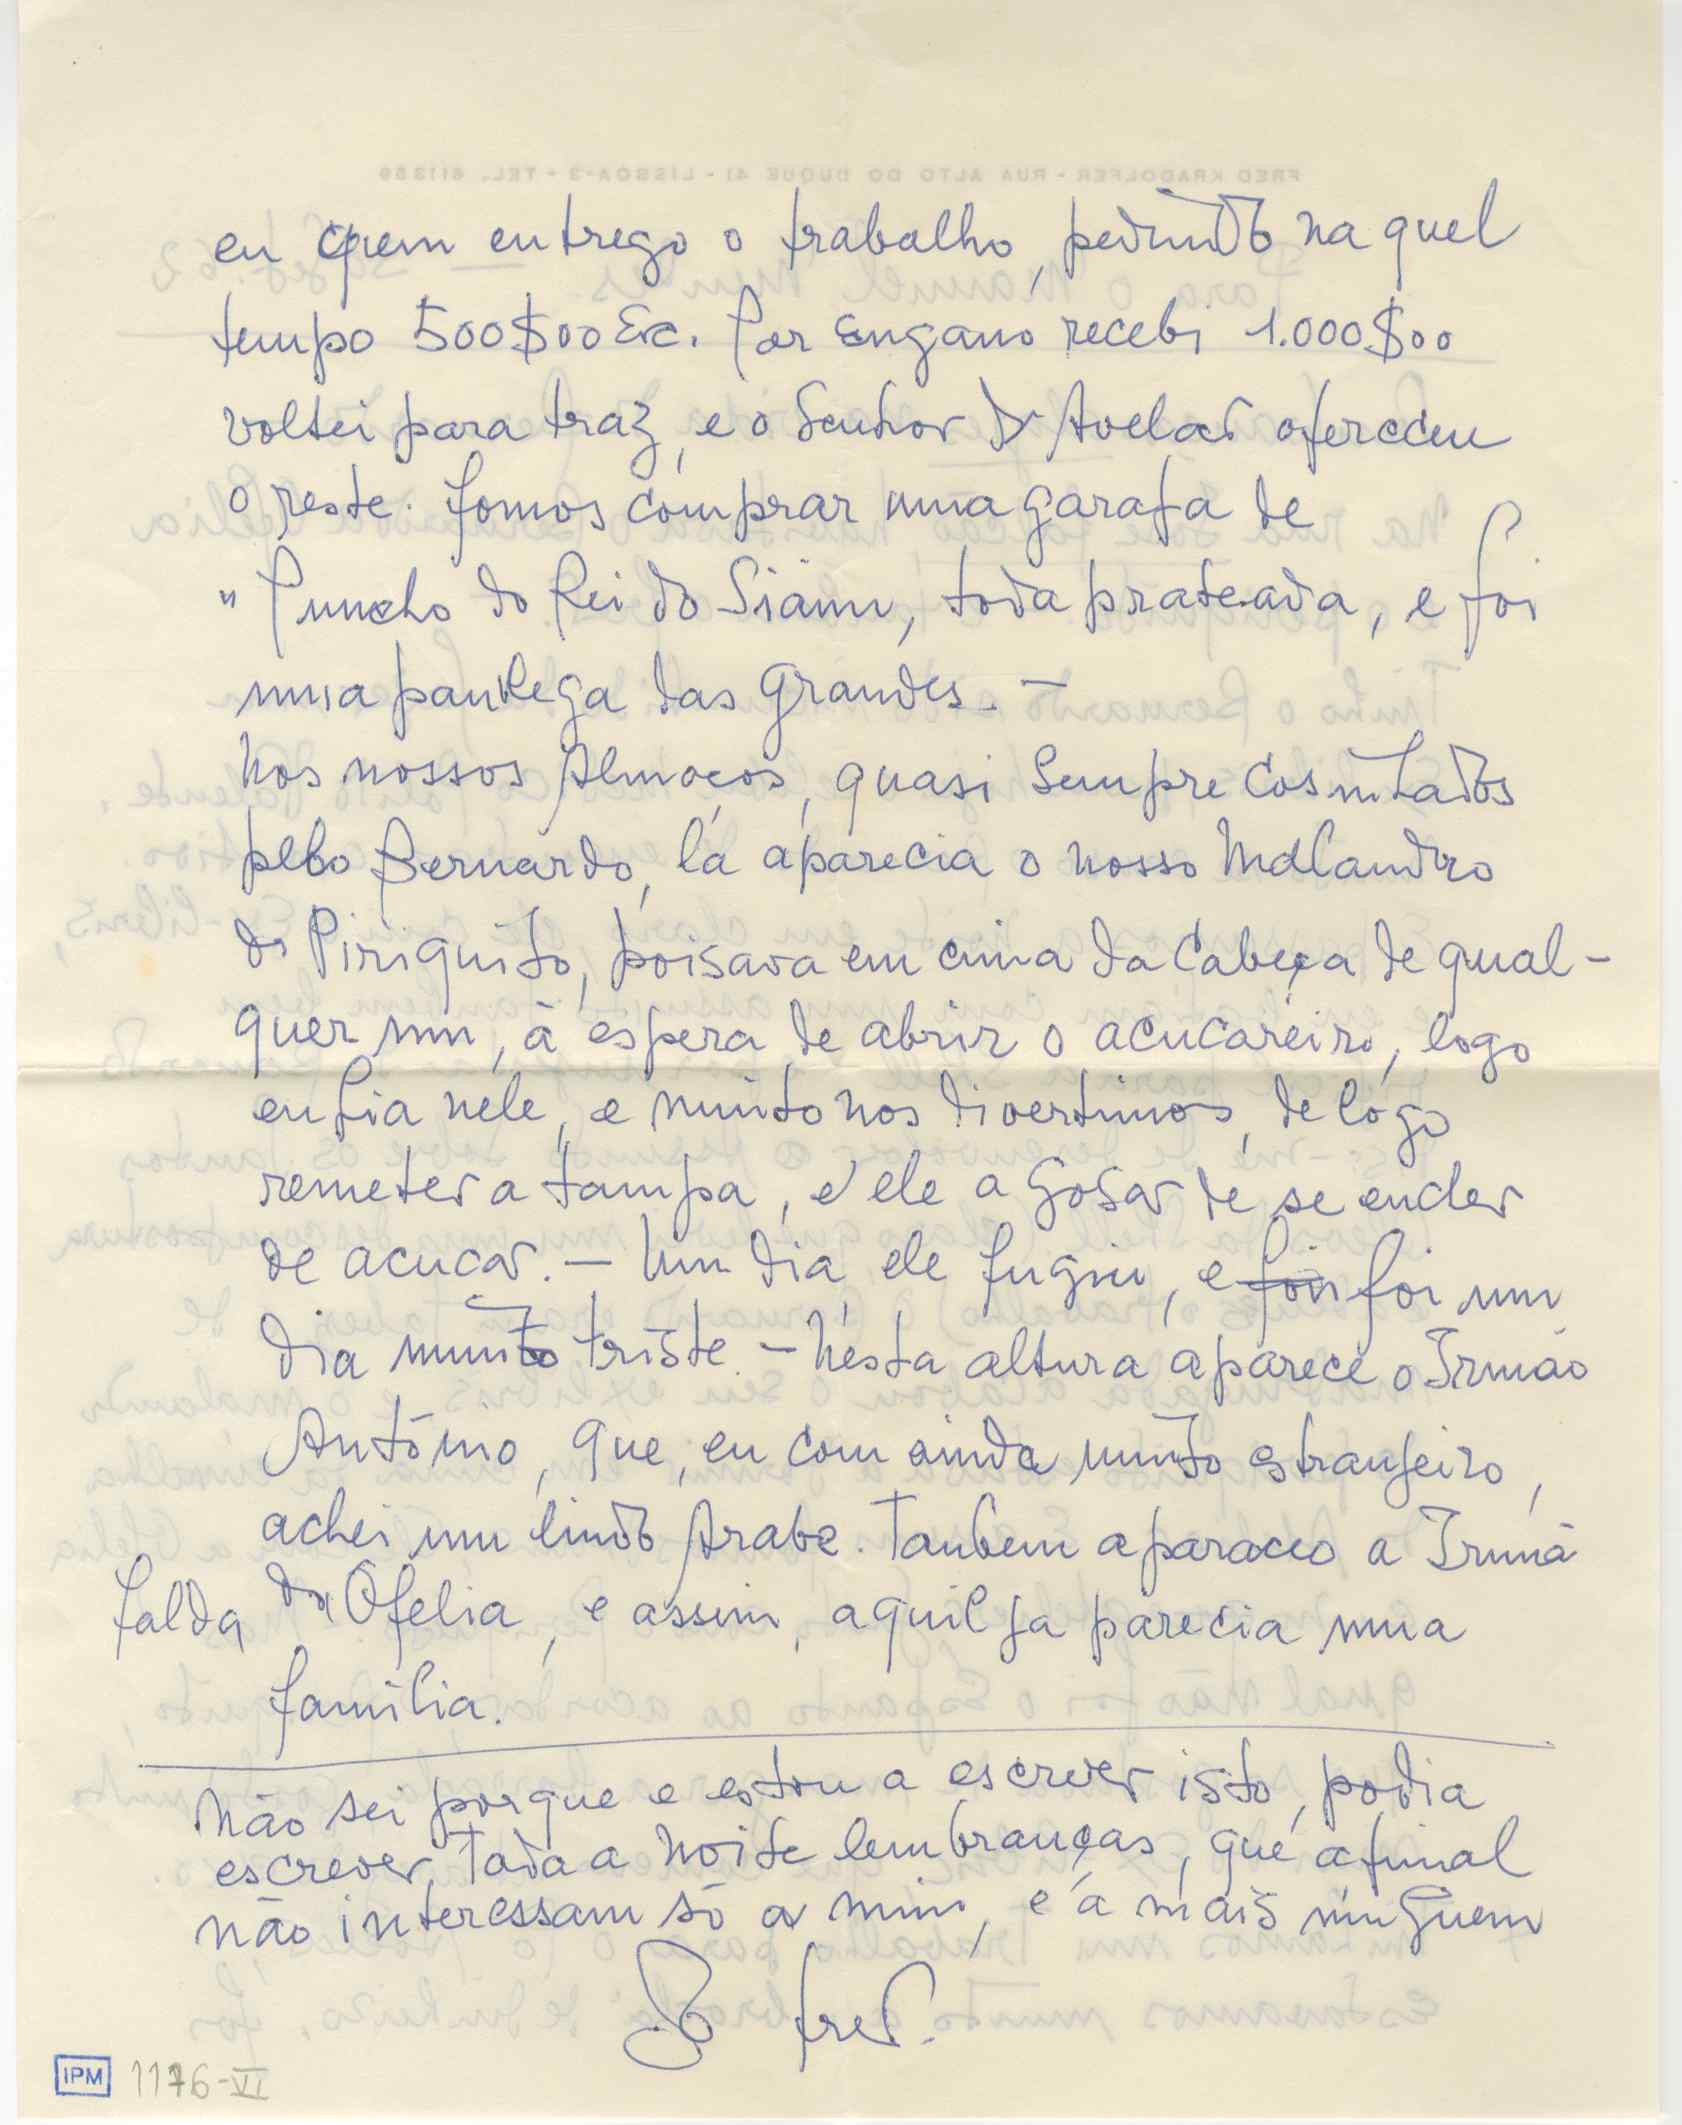 eu quem entrego o trabalho, pedindo naquel
tempo 500$00 Esc. Por engano recebi 1.000$00
voltei para traz, e o Senhor Dr Avelar ofereceu
o reste. Fomos comprar uma garafa de
"Puncho do Rei do Siãm, toda prateada, e foi
uma pandega das grandes. —
Nos nossos Almoços, quasi sempre cosinhados
pelo Bernardo, lá aparecia o nosso Malandro
do Piriquito, poisava em cima da cabeça de qual-
quer um, à espera de abrir o acucareiro, logo
enfia nele, e muito nos divertimos, de logo
remeter a tampa, e ele a gosar de se encher
de acucar. — Um dia ele fugiu, e foi foi um
dia muito triste — Nésta altura aparece o Irmão
António, que, eu com ainda muito estranjeiro,
achei um lindo Arabe. Tambem apareceo a Irmã
Falda da Ofelia, e assim, aquil ja parecia uma
família.
Não sei porque e estou a escrever isto, podia
escrever toda a noite lembranças, que afinal
não interessam só a mim, e a mais ninguem
Fred.
IPM 1176-VI
FRED KRADOLFER - RUA ALTO DO DUQUE 41 - LISBOA-3 - TEL. 611359